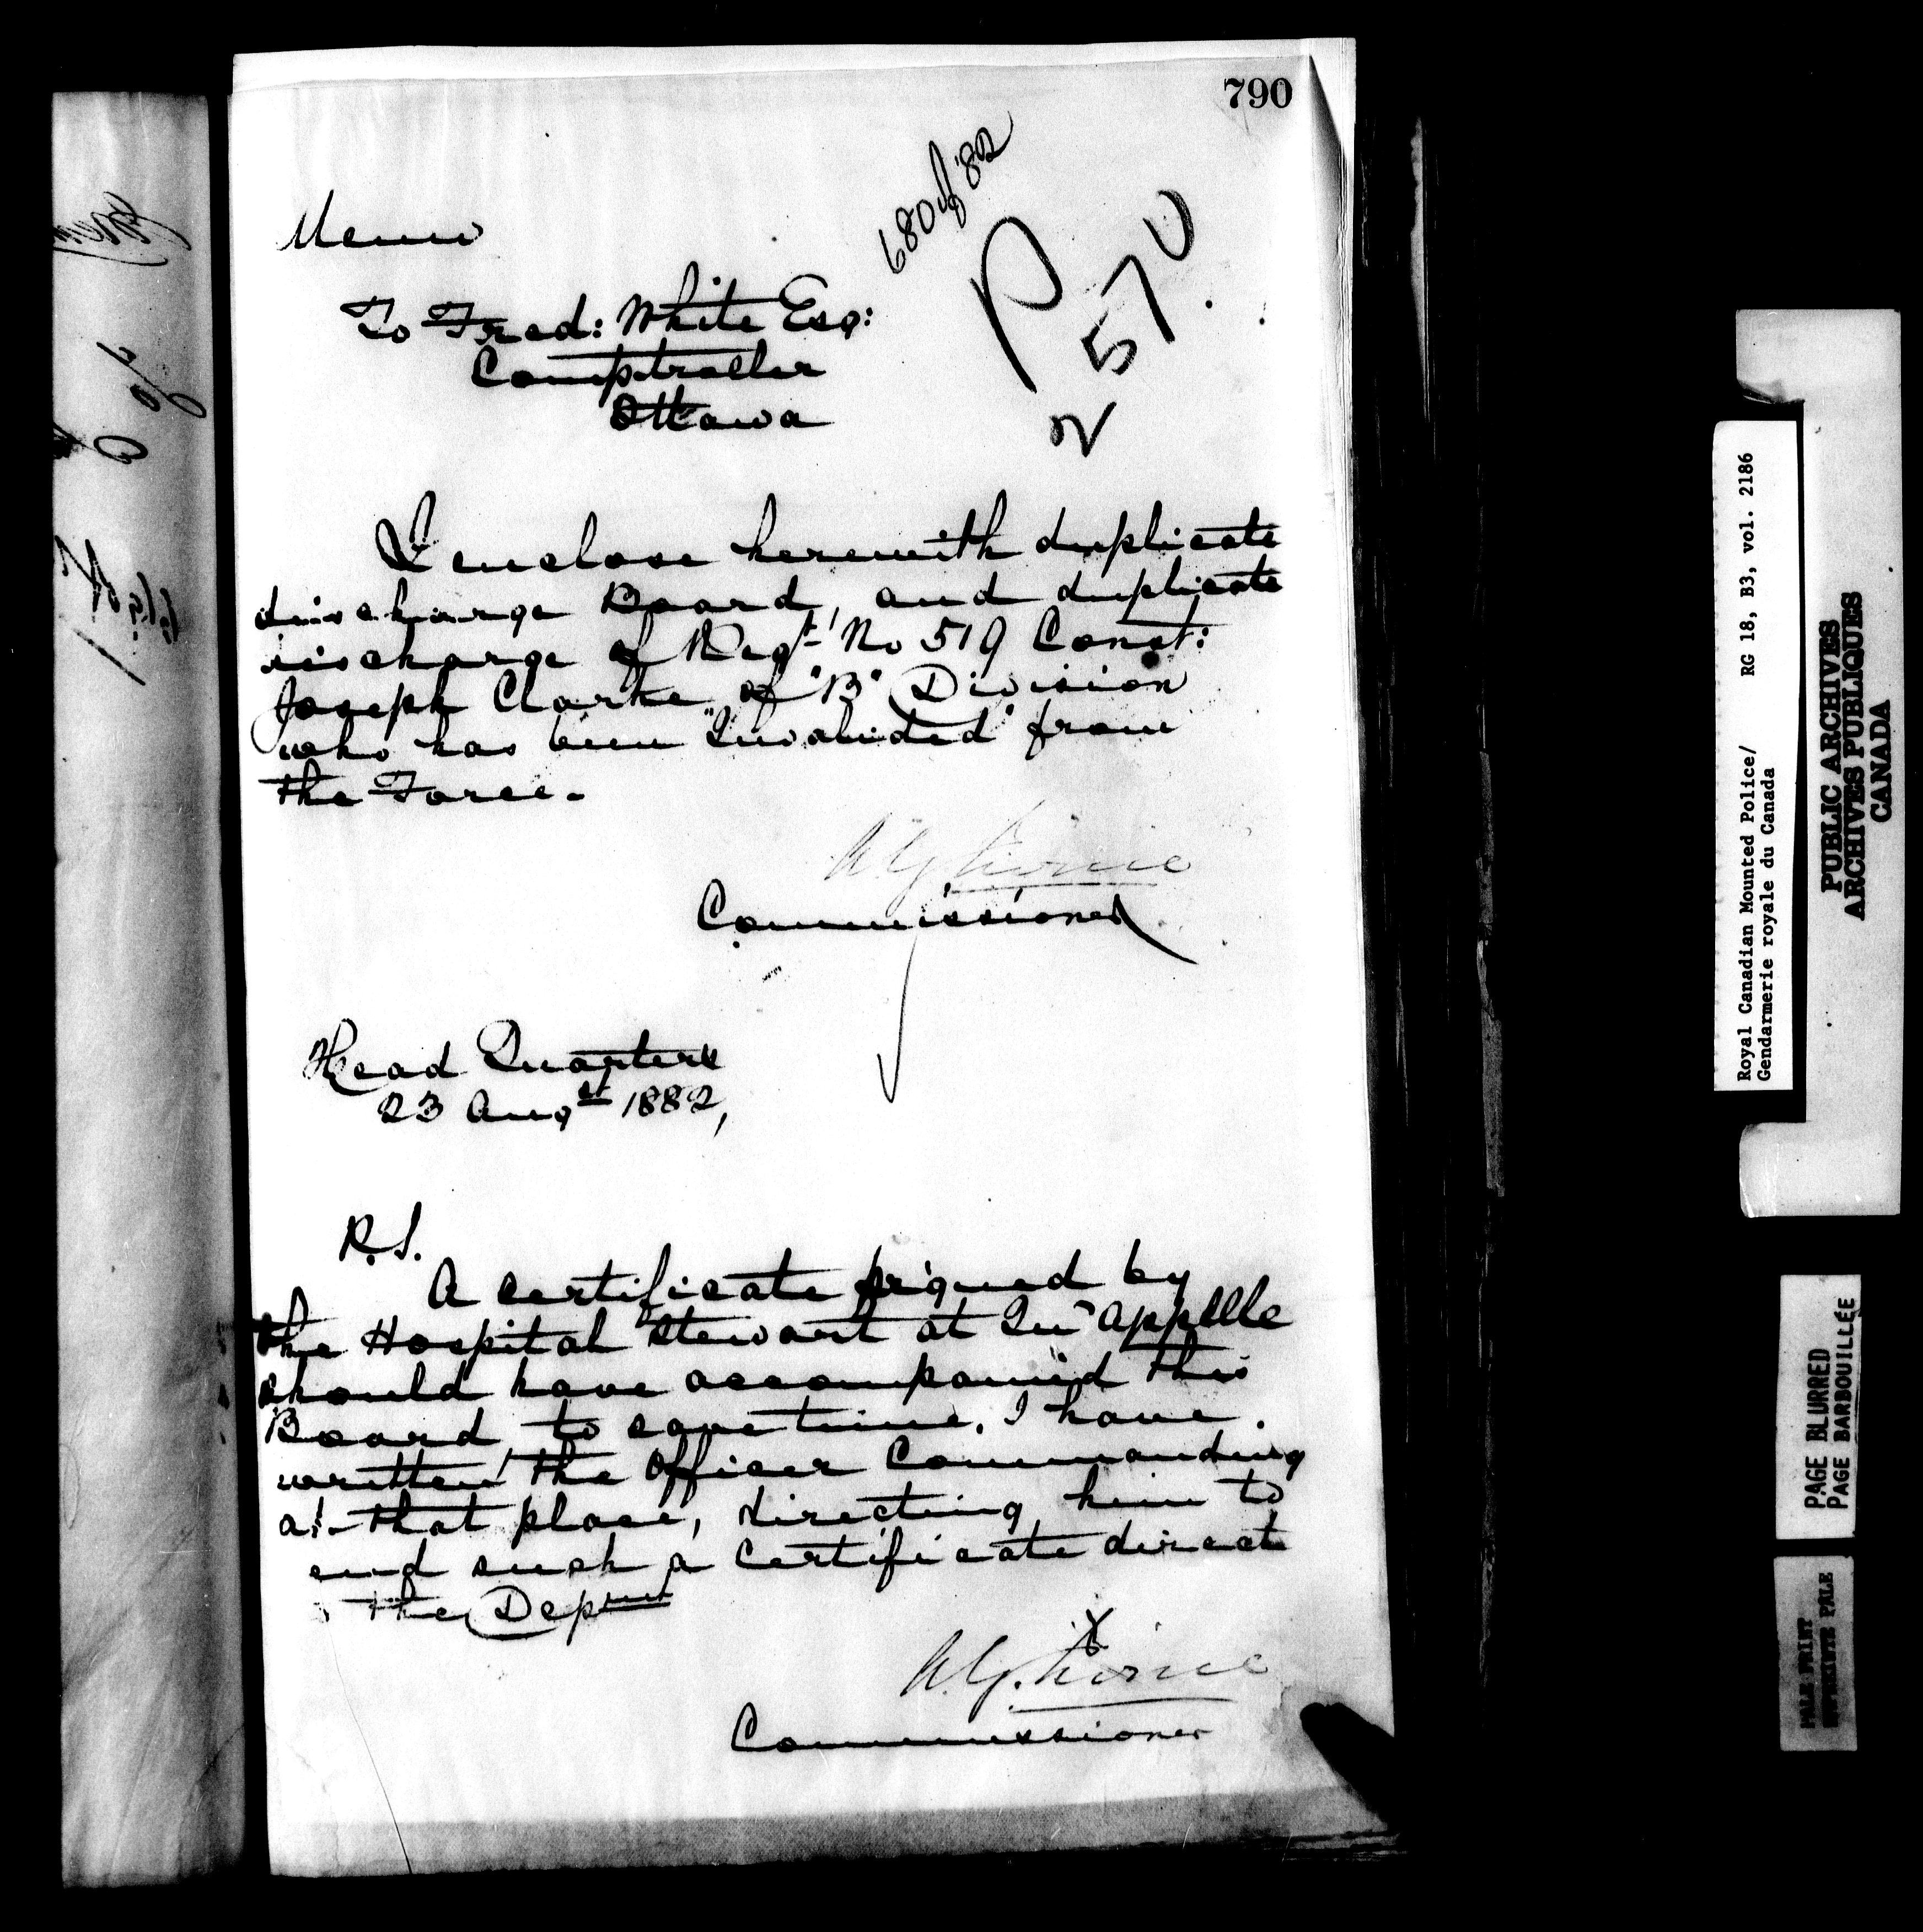 790
680 of '82
P
257U
Memo
To Fred: White Esq:
Comptroller
Ottawa
I enclose herewith duplicate
discharge Board, and duplicate
discharge of Regt'l No 519 Const:
Joseph Clarke of "B" Division
who has been "Invalided" from
the Force.
A.G. Irvine
Commissioner
Head Quarters
23 Augst 1882,
P.S.
A certificate signed by
the Hospital Stewart at Qu'Appelle
should have accompanied this
Board, to save time, I have
written the Officer Commanding
at that place, directing him to
end such a certificate direct
the Depmt
A.G. Irvine
Commissioner
Royal Canadian Mounted Police/ RG 18, B3, vol. 2186
Gendarmerie royale du Canada
PUBLIC ARCHIVES
ARCHIVES PUBLIQUES
CANADA
PAGE BLURRED
PAGE BARBOUILLÉE
PALE PRINT
EPREUVE PALE